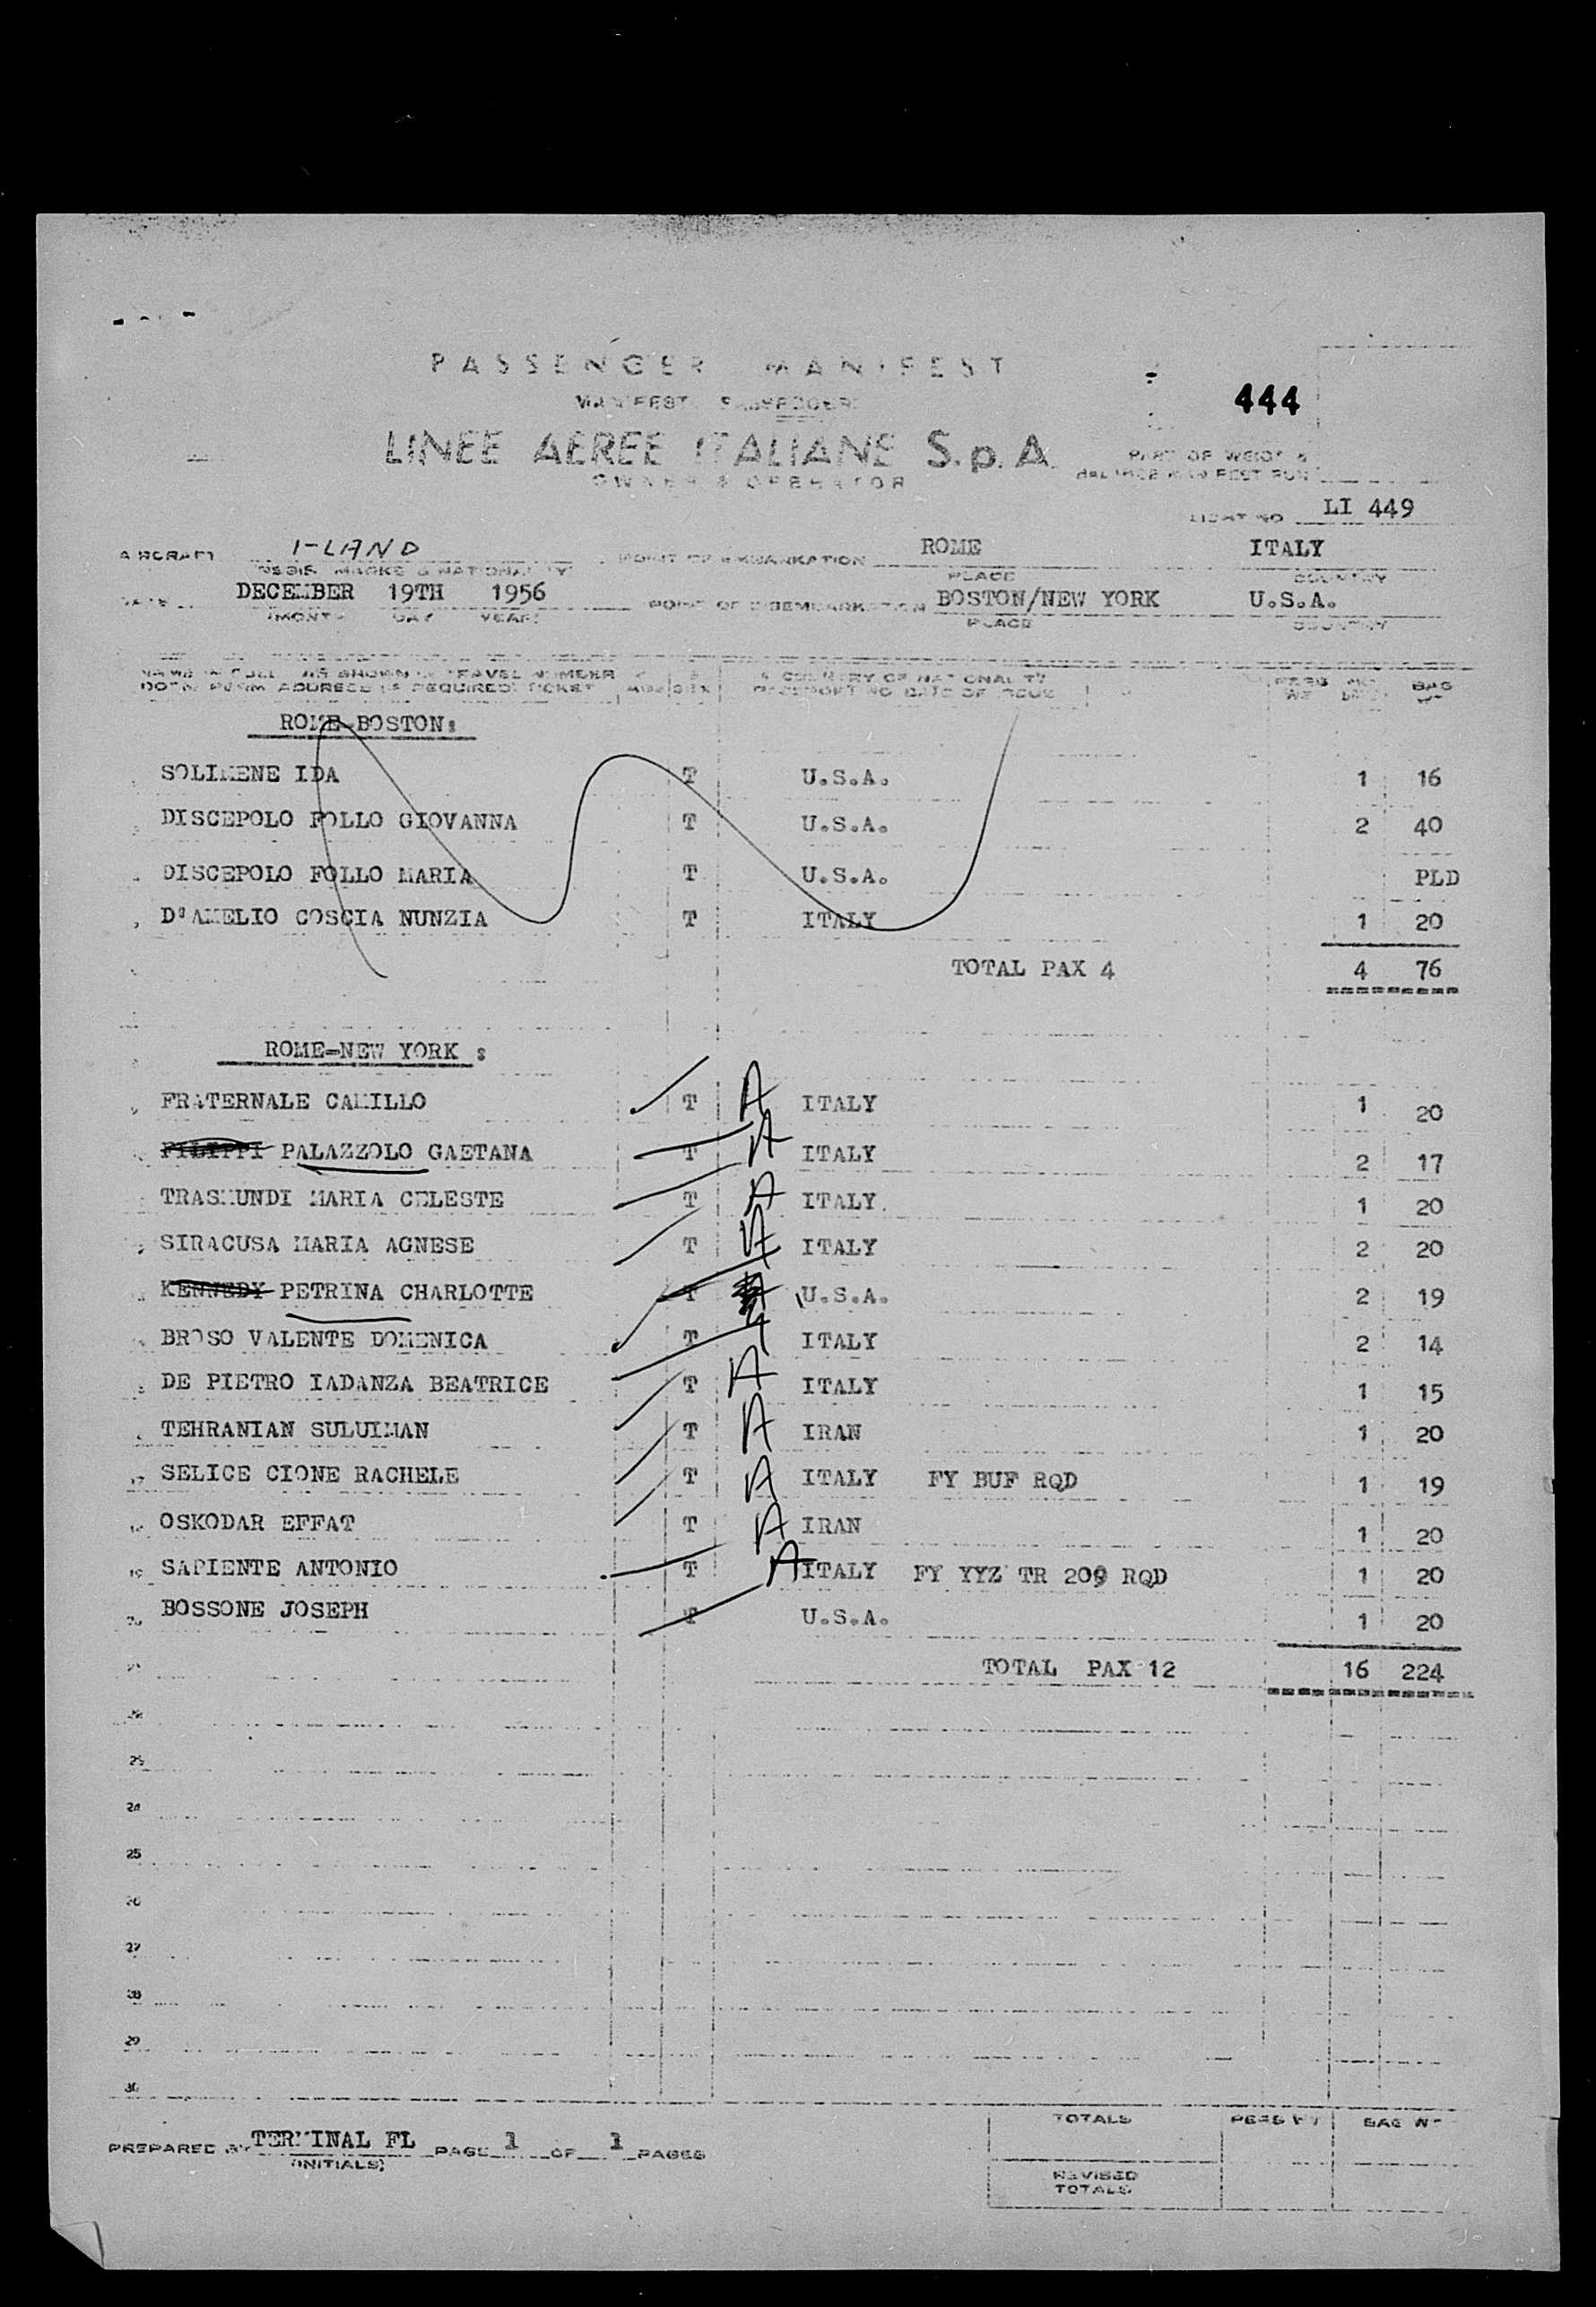 PASSENGER MANIFEST
444
LINEE AEREE ITALIANE S.p.A.
OWNER & OPERATOR
PART OF WEIGHT &
LI 449
AIRCRAFT I-LAND POINT OF EMBARKATION ROME ITALY
PLACE COUNTRY
DATE DECEMBER 19TH 1956 POINT OF DISEMBARKATION BOSTON/NEW YORK U.S.A.
MONTH DAY YEAR PLACE COUNTRY
ROME-BOSTON:
SOLIMENE IDA T U.S.A. 1 16
DISCEPOLO FOLLO GIOVANNA T U.S.A. 2 40
DISCEPOLO FOLLO MARIA T U.S.A. PLD
D'AMELIO COSCIA NUNZIA T ITALY 1 20
TOTAL PAX 4 4 76
ROME-NEW YORK :
FRATERNALE CAMILLO T A ITALY 1 20
FILIPPI PALAZZOLO GAETANA T A ITALY 2 17
TRASMUNDI MARIA CELESTE T A ITALY 1 20
SIRACUSA MARIA AGNESE T A ITALY 2 20
KENNEDY PETRINA CHARLOTTE T U.S.A. 2 19
BROSO VALENTE DOMENICA T ITALY 2 14
DE PIETRO IADANZA BEATRICE T A ITALY 1 15
TEHRANIAN SULUIMAN T A IRAN 1 20
17 SELICE CIONE RACHELE T A ITALY FY BUF RQD 1 19
18 OSKODAR EFFAT T A IRAN 1 20
19 SAPIENTE ANTONIO T A ITALY FY YYZ TR 209 RQD 1 20
20 BOSSONE JOSEPH T U.S.A. 1 20
21 TOTAL PAX 12 16 224
22
23
24
25
26
27
28
29
30
TOTALS BAG WT
PREPARED BY TERMINAL FL PAGE 1 OF 1 PAGES
(INITIALS)
REVISED
TOTALS